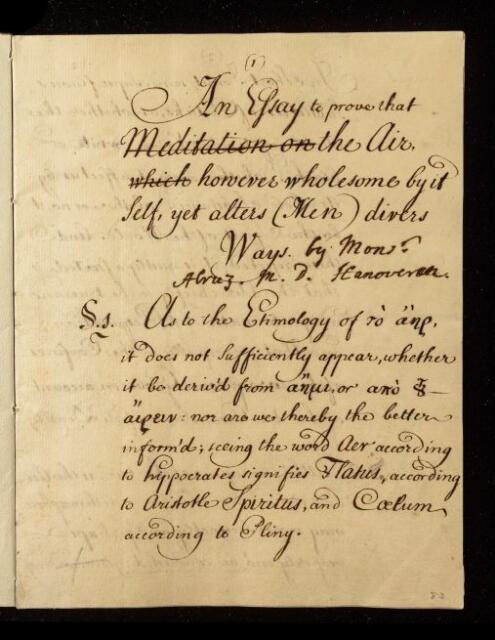 (1)
An Essay to prove that
Meditation on the Air,
which however wholesome by it
self, yet alters (Men) divers
Ways. by Monsr.
M. D. Hanoveran.
§.1. As to the Etimology of τὸ ἄηρ,
it does not sufficiently appear, whether
it be deriv'd from ἄημι, or ἀπὸ τȣ͂
ἄιρειν: nor are we thereby the better
inform'd; seeing the word Aer according
to hippocrates signifies Flatus, according
to Aristotle Spiritus, and Cœlum
according to Pliny.
83